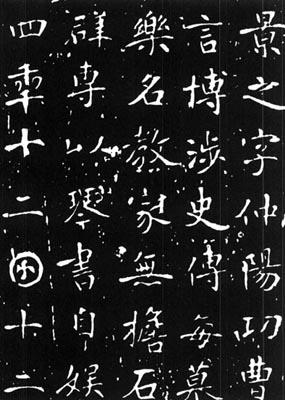 景之字仲陽功曹
言博涉史傳每莫
樂名教家無擔石
群專以琴書自娛
四年十二十二